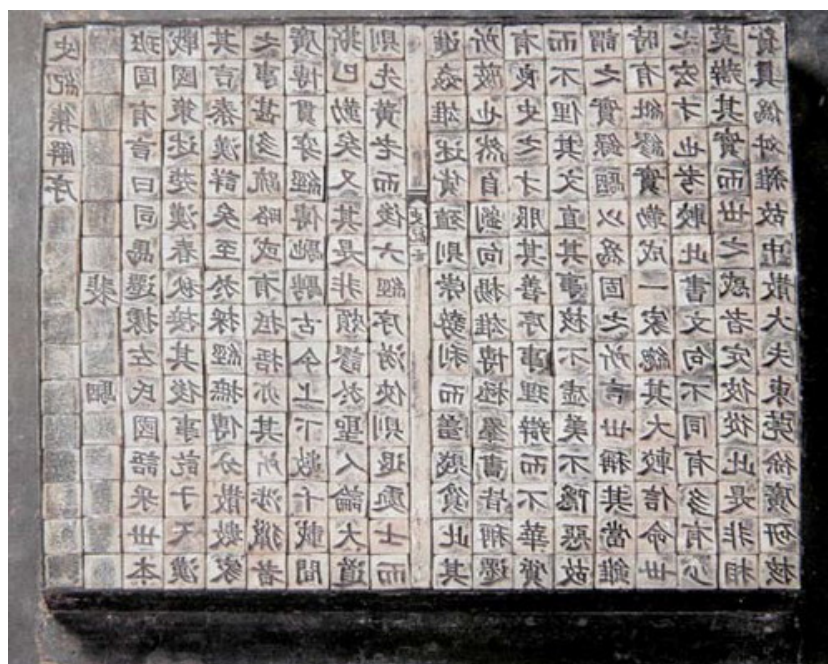 史記集解序
裴駰
班固有言曰司馬遷據左氏國語采世本
戰國策述楚漢春秋接其後事訖于天漢
其言秦漢詳矣至於採經摭傳分散數家
之事甚多疏略或有抵捂亦其所涉獵者
廣博貫穿經傳馳騁古今上下數千載間
斯已勤矣又其是非頗謬於聖人論大道
則先黃老而後六經序游俠則退處士而
史記序
進姦雄述貨殖則崇勢利而羞賤貧此其
所蔽也然自劉向揚雄博極羣書皆稱遷
有良史之才服其善序事理辯而不華質
而不俚其文直其事核不虛美不隱惡故
謂之實錄駰以爲固之所言世稱其當雖
時有紕繆實勒成一家總其大較信命世
之宏才也考較此書文句不同有多有少
莫辯其實而世之惑者定彼從此是非相
貿真僞舛雜故中散大夫東莞徐廣研核